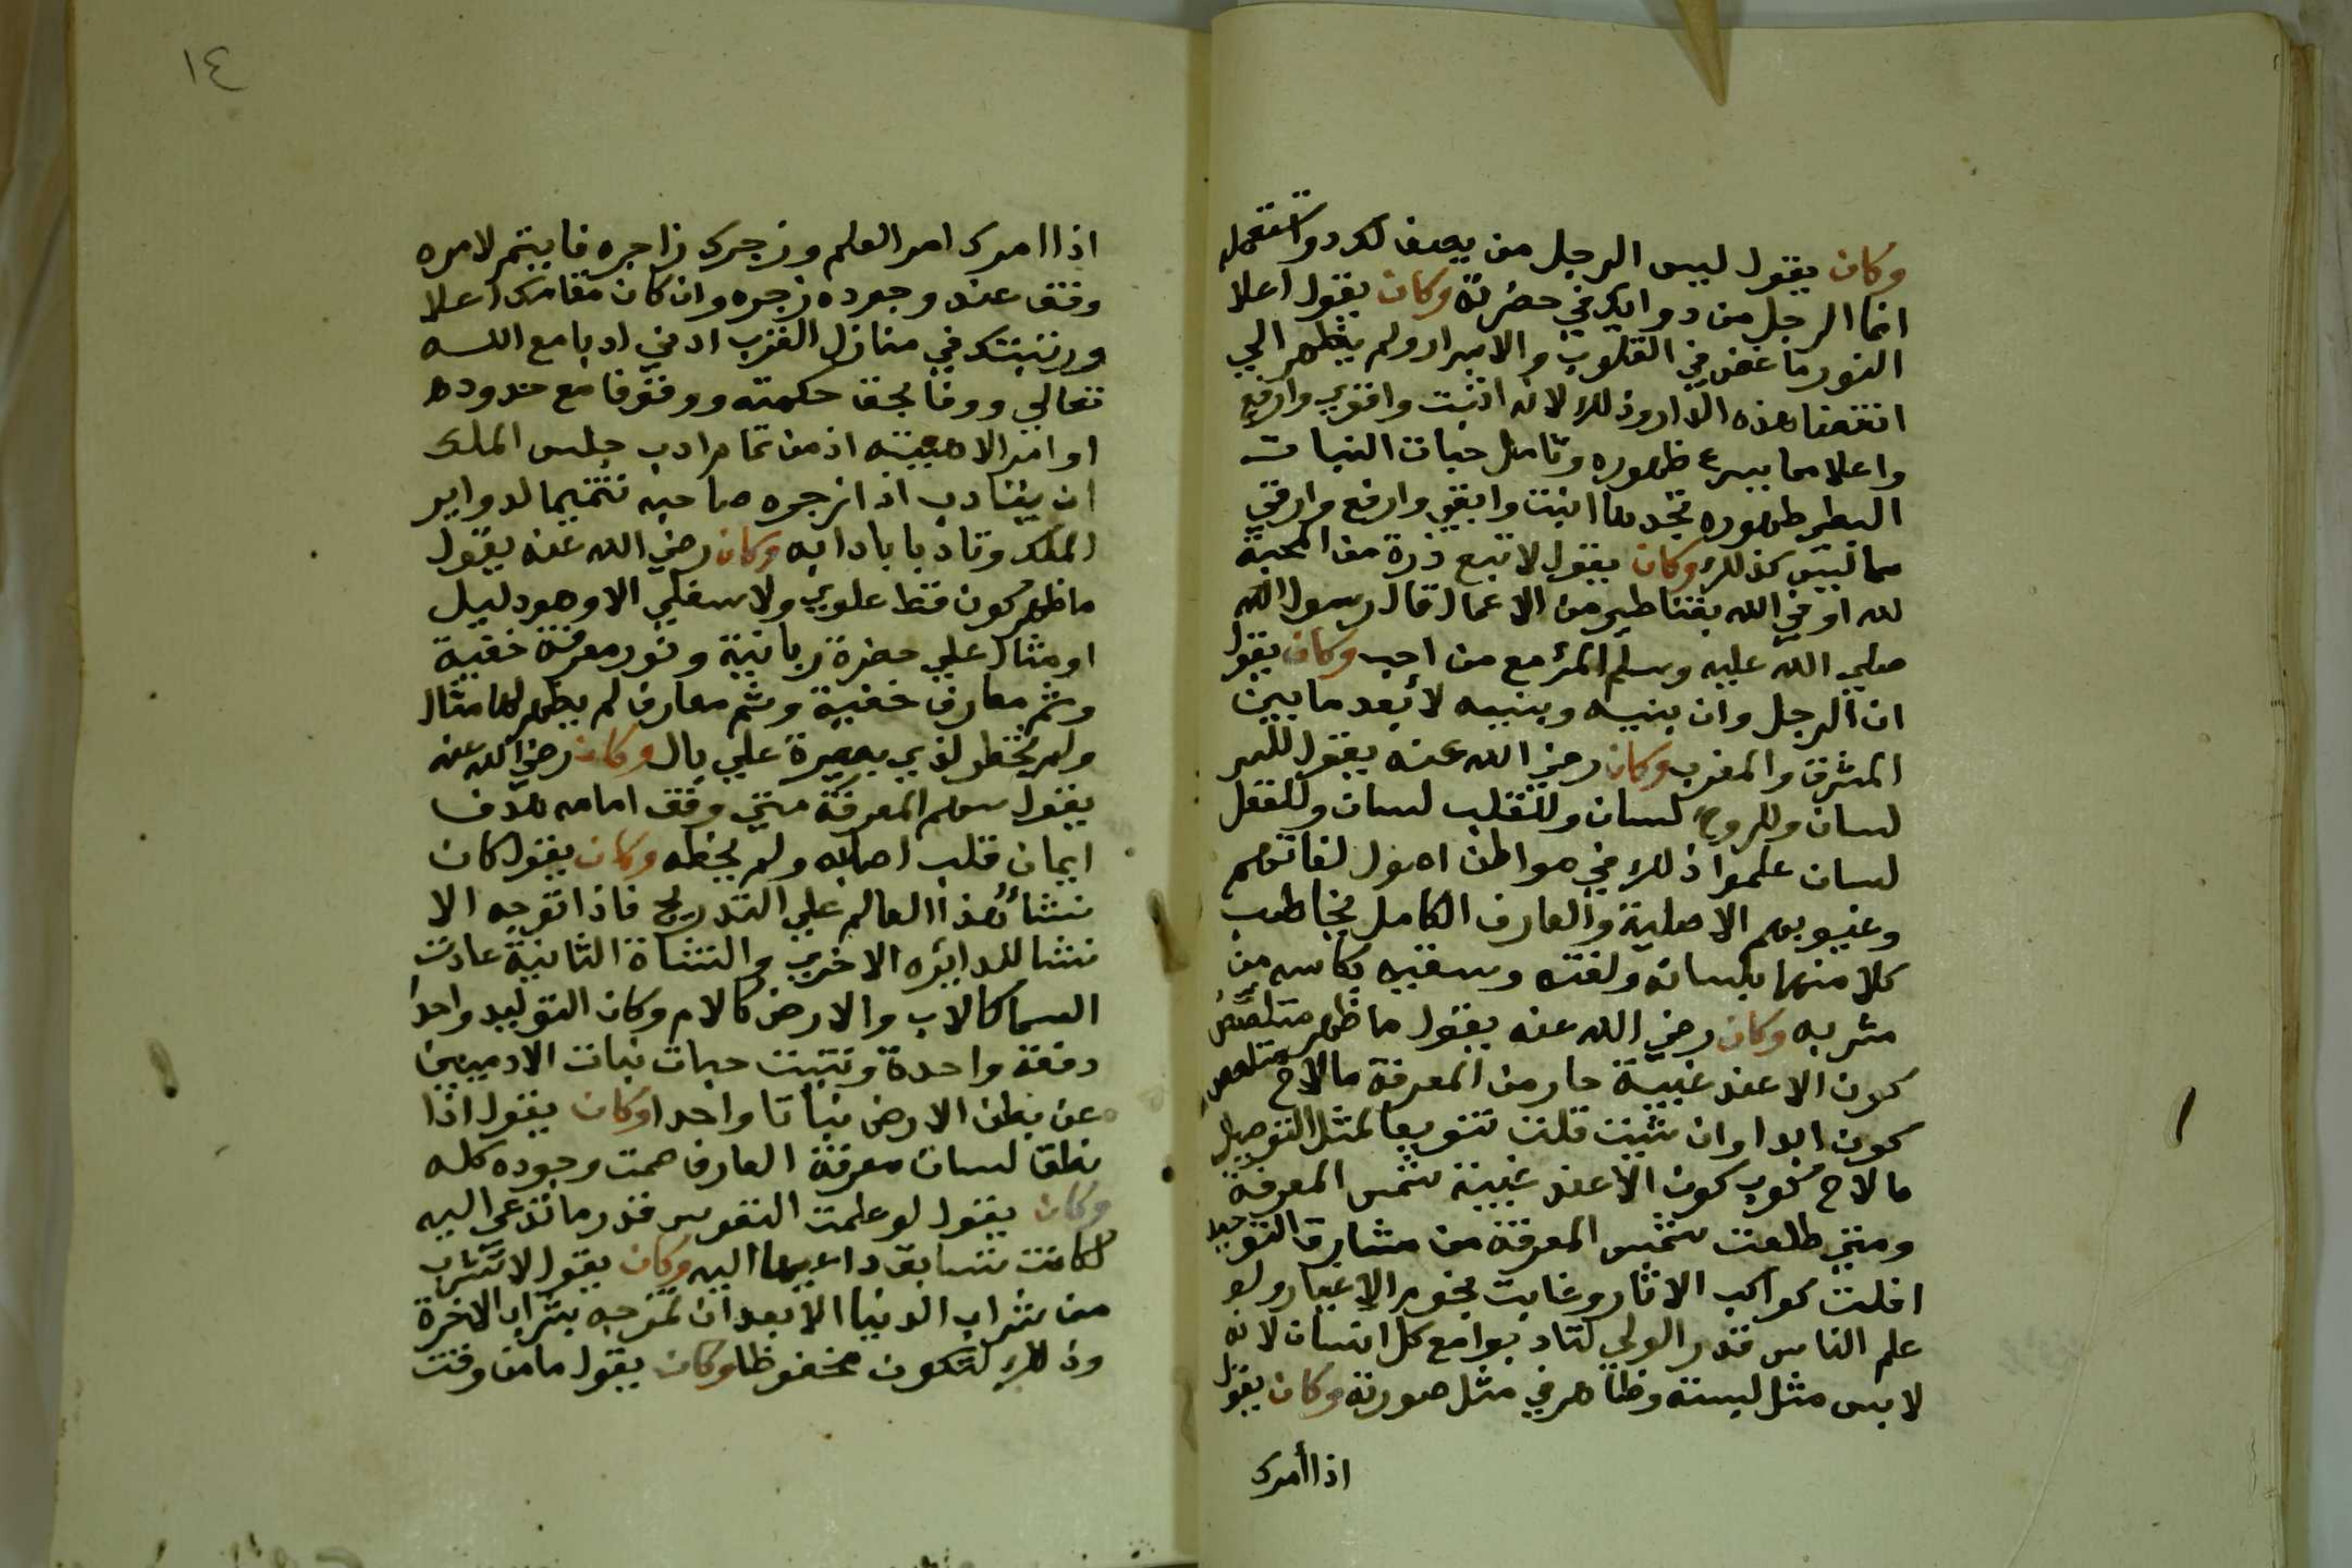 وكان يقول ليس الرجل من يصف لك دوا تستعمله
انما الرجل من دوايك في حضرته وكان يقول اعلا
النور ما غض في القلوب والاسرار ولم يظهر الي
انتفنا هذه الدار وذلك لانه اثبت واقوي وارفع
واعلا مما يسرع ظهوره وتامل حبات النبات
البطي ظهوره تجدها اثبت وابقي وارفع وارقي
مما ليس كذلك وكان يقول لا تبع ذرة من المحبة
لله او في الله بقناطير من الاعمال قال رسول الله
صلي الله عليه وسلم المرء مع من احب وكان يقول
ان الرجل وان بنيه وبنيه لأبعد ما بين
المشرق والمغرب وكان رضي الله عنه يقول للسر
لسان وللروح لسان وللقلب لسان وللعقل
لسان علموا ذلك في مواطن اصول لغاتهم
وغيوبهم الاصلية والعارف الكامل يخاطب
كلا منهم بلسانه ولغته وسقيه بكاسه من
مشربه وكان رضي الله عنه يقول ما ظهر
كون الا عند غيبة حار من المعرفة ما لاح
كون ابدا وان شئت قلت تنويعا لمثل التوصيل
ما لاح كوكب كون الا عند غيبة شمس المعرفة
ومتي طلعت شمس المعرفة من مشارق التوحيد
افلت كواكب الاثار وغابت نجوم الاغيار ولو
علم الناس قدر الولي لتادبوا مع كل انسان لانه
لابس مثل لبسته وظاهر في مثل صورته وكان يقول
اذا أمرك
١٤
اذا امرك امر العلم وزجرك زاجره فايتمر لامره
وقف عند وجوده زجره وان كان مقامك اعلا
ورتبتك في منازل القرب ادني ادبا مع الله
تعالي ووفا بحق حكمته ووقوفا مع حدوده
اوامر الاهيته اذ من تمام ادب جليس الملك
ان يتادب اذا زجره صاحبه تتميما لدواير
الملك وتادبا بادابه وكان رضي الله عنه يقول
ما ظهر كون قط علوي ولا سفلي الا وهو دليل
او مثال علي حضرة ربانية ونور معرفة خفية
وثم معارف خفية وثم معارف لم يظهر لها مثال
ولم تخطر لذي بصيرة علي بال وكان رضي الله عنه
يقول سهم المعرفة متي وقف امامه هدف
ايمان قلب اصابه ولم يخطه وكان يقول كان
نشأ هذا العالم علي التدريج فاذا توجه الا
نشا للدايره الاخري والنشاة الثانية عادت
السما كالاب والارض كالام وكان التوليد واحدا
دفعة واحدة وتنبت حبات نبات الادميين
عن بطن الارض نباتا واحدا وكان يقول اذا
نطق لسان معرفة العارف صمت وجوده كله
وكان يقول لو علمت النفوس قدر ما تدعي اليه
لكانت تسابق داعيها اليه وكان يقول لا تشرب
من شراب الدنيا الا بعد ان تمزجه بشراب الاخرة
وذلك لتكون محفوظا وكان يقول ما من وقت